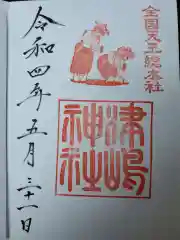 全国天王総本社
津島
神社
令和四年五月三十一日